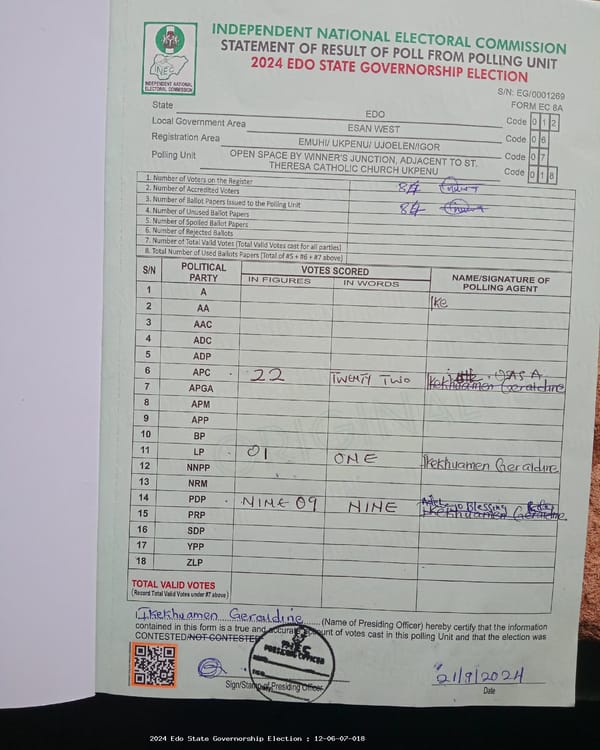 INDEPENDENT NATIONAL ELECTORAL COMMISSION
STATEMENT OF RESULT OF POLL FROM POLLING UNIT
2024 EDO STATE GOVERNORSHIP ELECTION
INEC
INDEPENDENT NATIONAL
ELECTORAL COMMISSION
S/N: EG/0001269
FORM EC 8A
State EDO Code 0 1 2
Local Government Area ESAN WEST Code 0 6
Registration Area EMUHI/ UKPENU/ UJOELEN/IGOR Code 0 7
Polling Unit OPEN SPACE BY WINNER'S JUNCTION, ADJACENT TO ST. THERESA CATHOLIC CHURCH UKPENU Code 0 1 8
1. Number of Voters on the Register 84
2. Number of Accredited Voters
3. Number of Ballot Papers Issued to the Polling Unit 84
4. Number of Unused Ballot Papers
5. Number of Spoiled Ballot Papers
6. Number of Rejected Ballots
7. Number of Total Valid Votes (Total Valid Votes cast for all parties)
8. Total Number of Used Ballots Papers (Total of #5 + #6 + #7 above)
S/N POLITICAL PARTY VOTES SCORED NAME/SIGNATURE OF POLLING AGENT
IN FIGURES IN WORDS
1 A
2 AA Ike
3 AAC
4 ADC
5 ADP
6 APC 22 TWENTY TWO
7 APGA Ikekhuamen Geraldine
8 APM
9 APP
10 BP
11 LP 01 ONE Ikekhuamen Geraldine
12 NNPP
13 NRM
14 PDP NINE 09 NINE Blessing
15 PRP Ikekhuamen Geraldine
16 SDP
17 YPP
18 ZLP
TOTAL VALID VOTES
(Record Total Valid Votes under #7 above)
I Ikekhuamen Geraldine (Name of Presiding Officer) hereby certify that the information
contained in this form is a true and accurate account of votes cast in this polling Unit and that the election was
CONTESTED/NOT CONTESTED
INEC
PRESIDING OFFICER
Sign/Stamp of Presiding Officer
21/9/2024
Date
2024 Edo State Governorship Election : 12-06-07-018